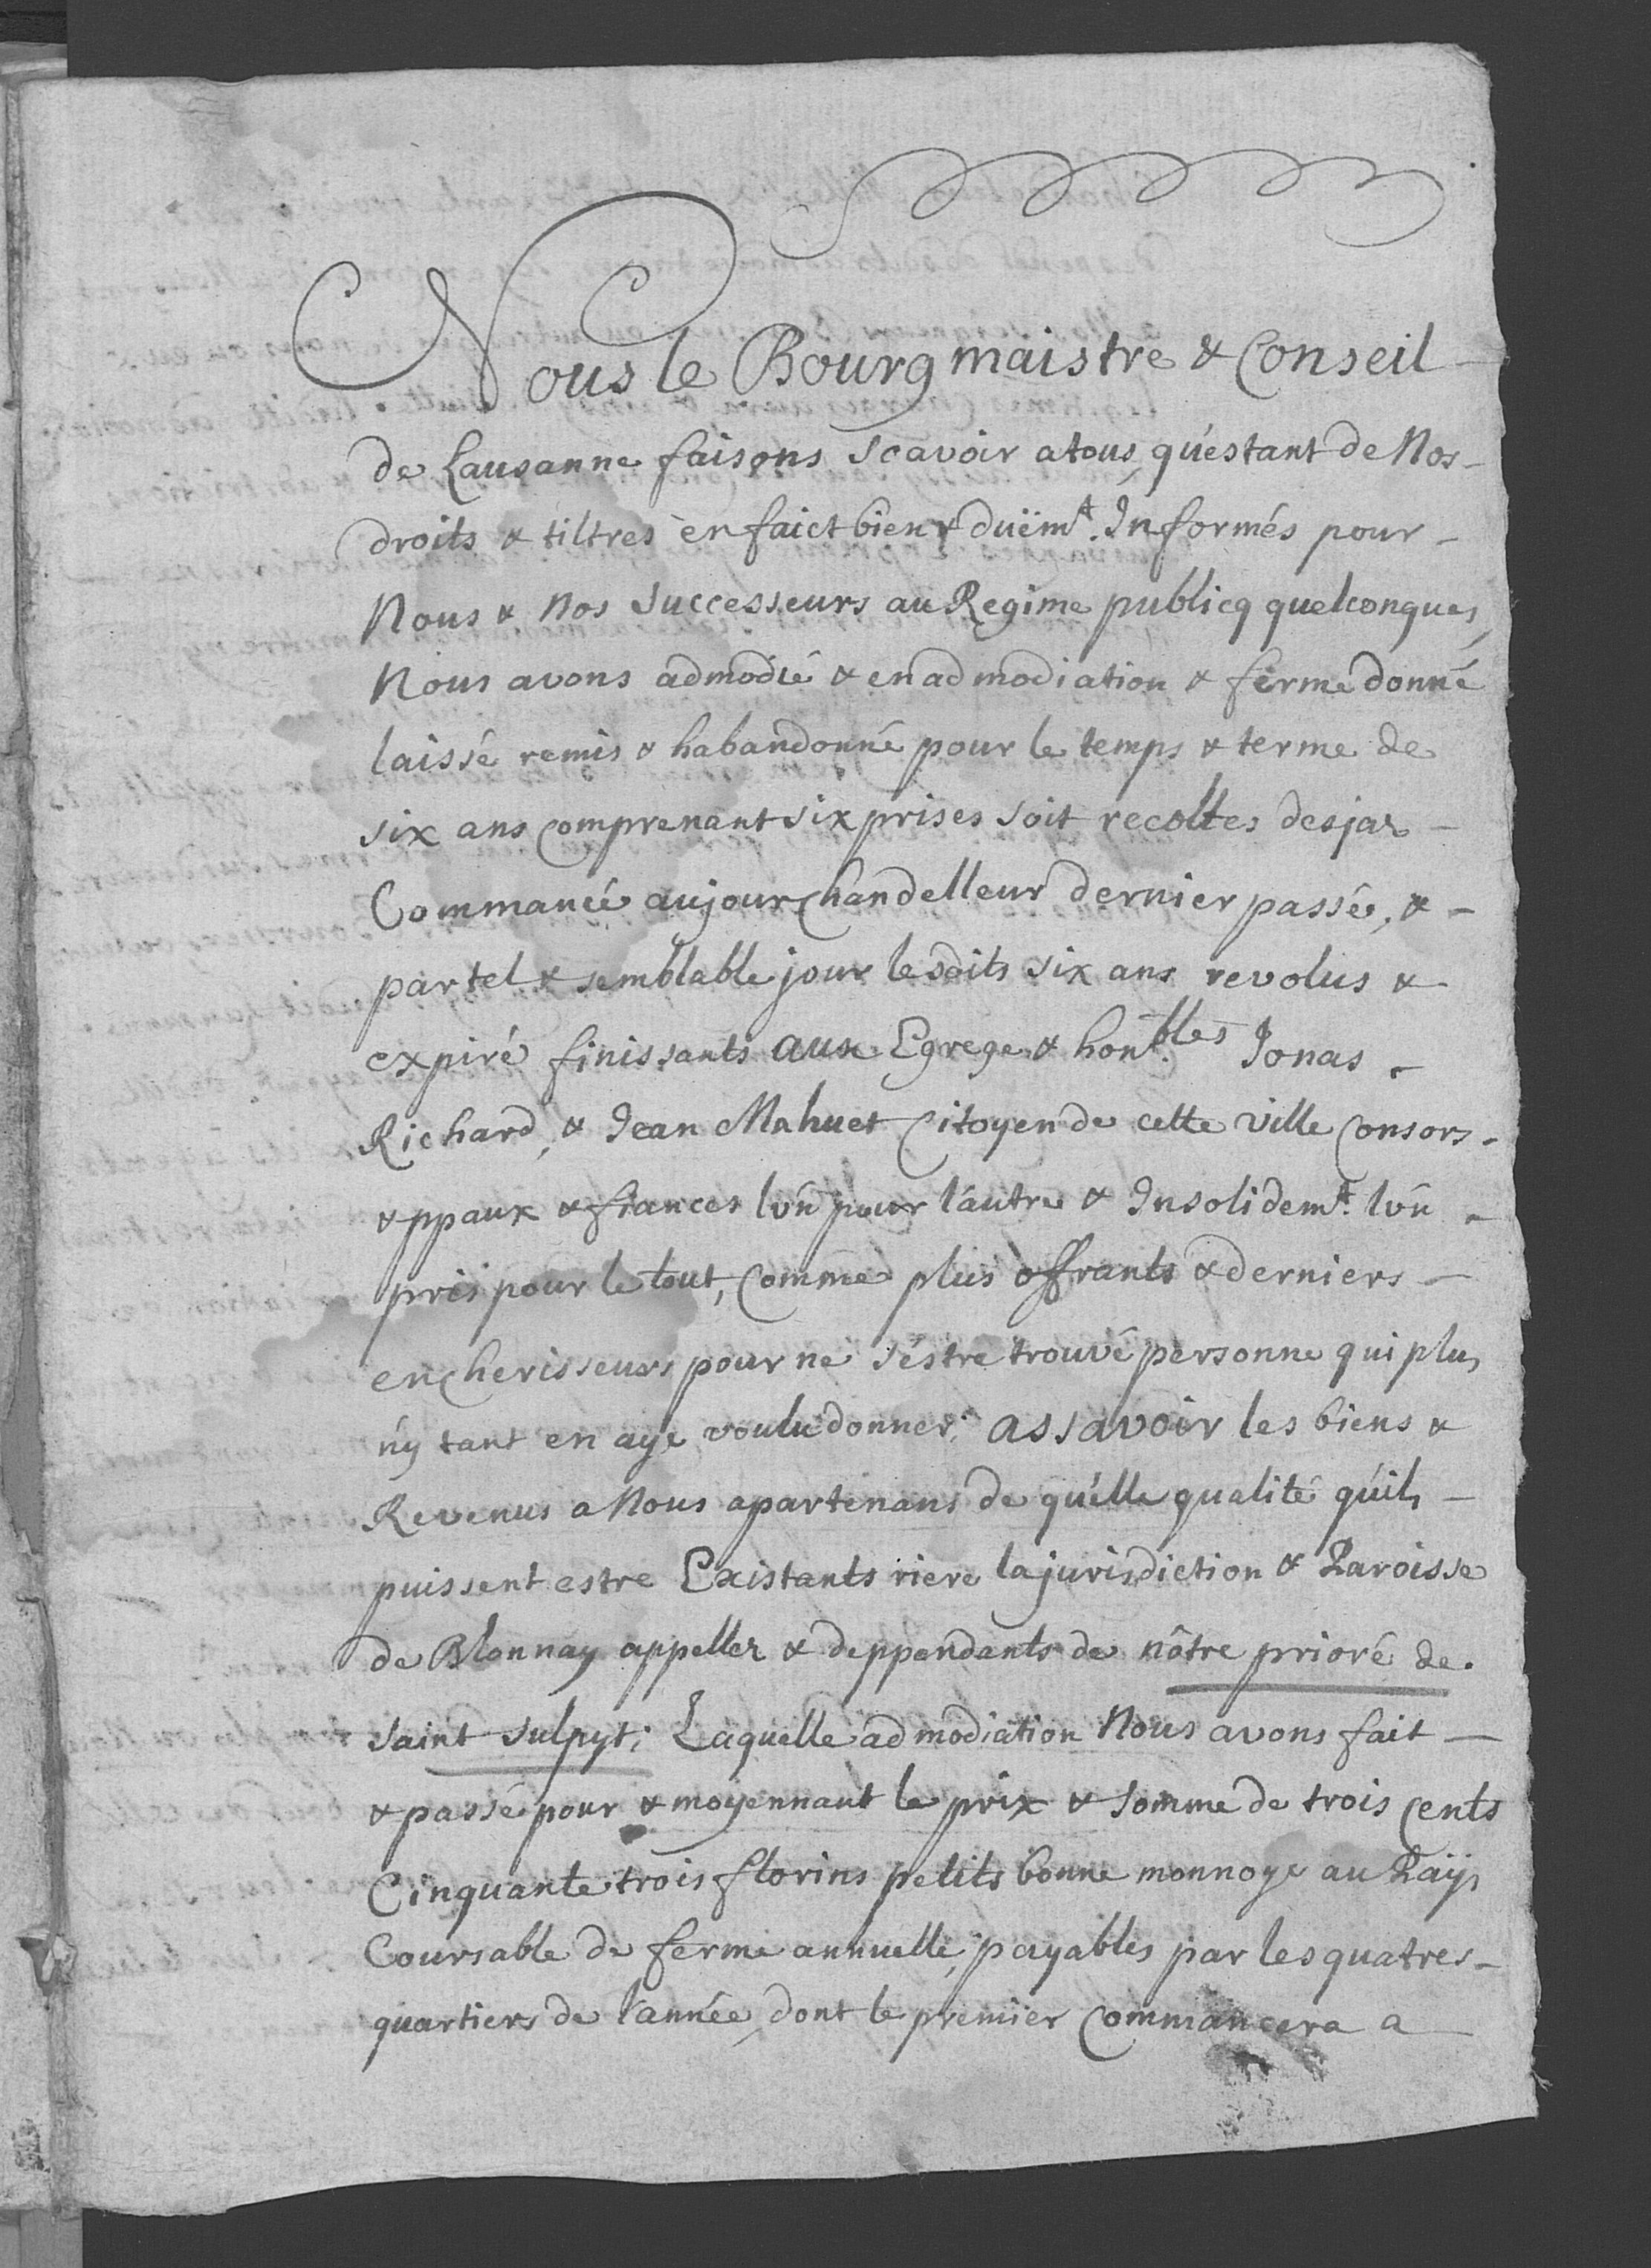 Nous le Bourgmaistre & Conseil
de Lausanne faisons scavoir a tous, qu'estant de Nos
droits & tiltres en faict bien & duëmt. Informés pour
Nous & nos successeurs au Regime publicq quelconques,
Nous avons admodié & en admodiation & ferme donné
laissé remis & habandonné pour le temps & terme de
six ans comprenant six prises soit recoltes desjaz
Commancé au jour Chandelleur dernier passé, &
par tel & semblable jour lesdits six ans revolus &
expiré finissants aux Egrege & hont.bles Jonas
Richard, & Jean Mahuet Citoyen de cette ville Consors
& ppaux & fiances l'vn pour l'autre & Insolidemt. l'vn
pris pour le tout, Comme plus offrants & derniers
encherisseurs pour ne s'estre trouvé personne qui plus
n'y tant en aye voulu donner; assavoir les biens &
Revenus a Nous apartenans de qu'elle qualité qu'ils
puissent estre Existants riere la jurisdiction & Paroisse
de Blonnay appellez & deppendants de nôtre prioré de
saint sulpyt; Laquelle admodiation Nous avons fait
& passé pour & moyennant le prix & somme de trois Cents
Cinquante trois florins petits bonne monnoye au Pays
Coursable de ferme annuelle, payables par les quatres
quartiers de l'année, dont le premier Commancera a